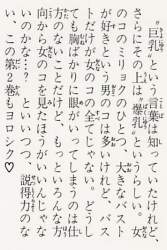 "巨乳"という言葉は知っていたけれど、
さらにその上は"爆乳"というらしい。女
のコのミリョクのひとつ、大きなバスト
が好きという男のコは多いけれど、バス
トだけが女のコの全てじゃない。どうし
ても胸ばかりに眼がいってしまうのは仕
方のないことだけど、もっといろんな方
向から女のコを見たほうがいいんじゃな
いのかな…？　といいつつ、説得力のな
い、この第２巻もヨロシク♡